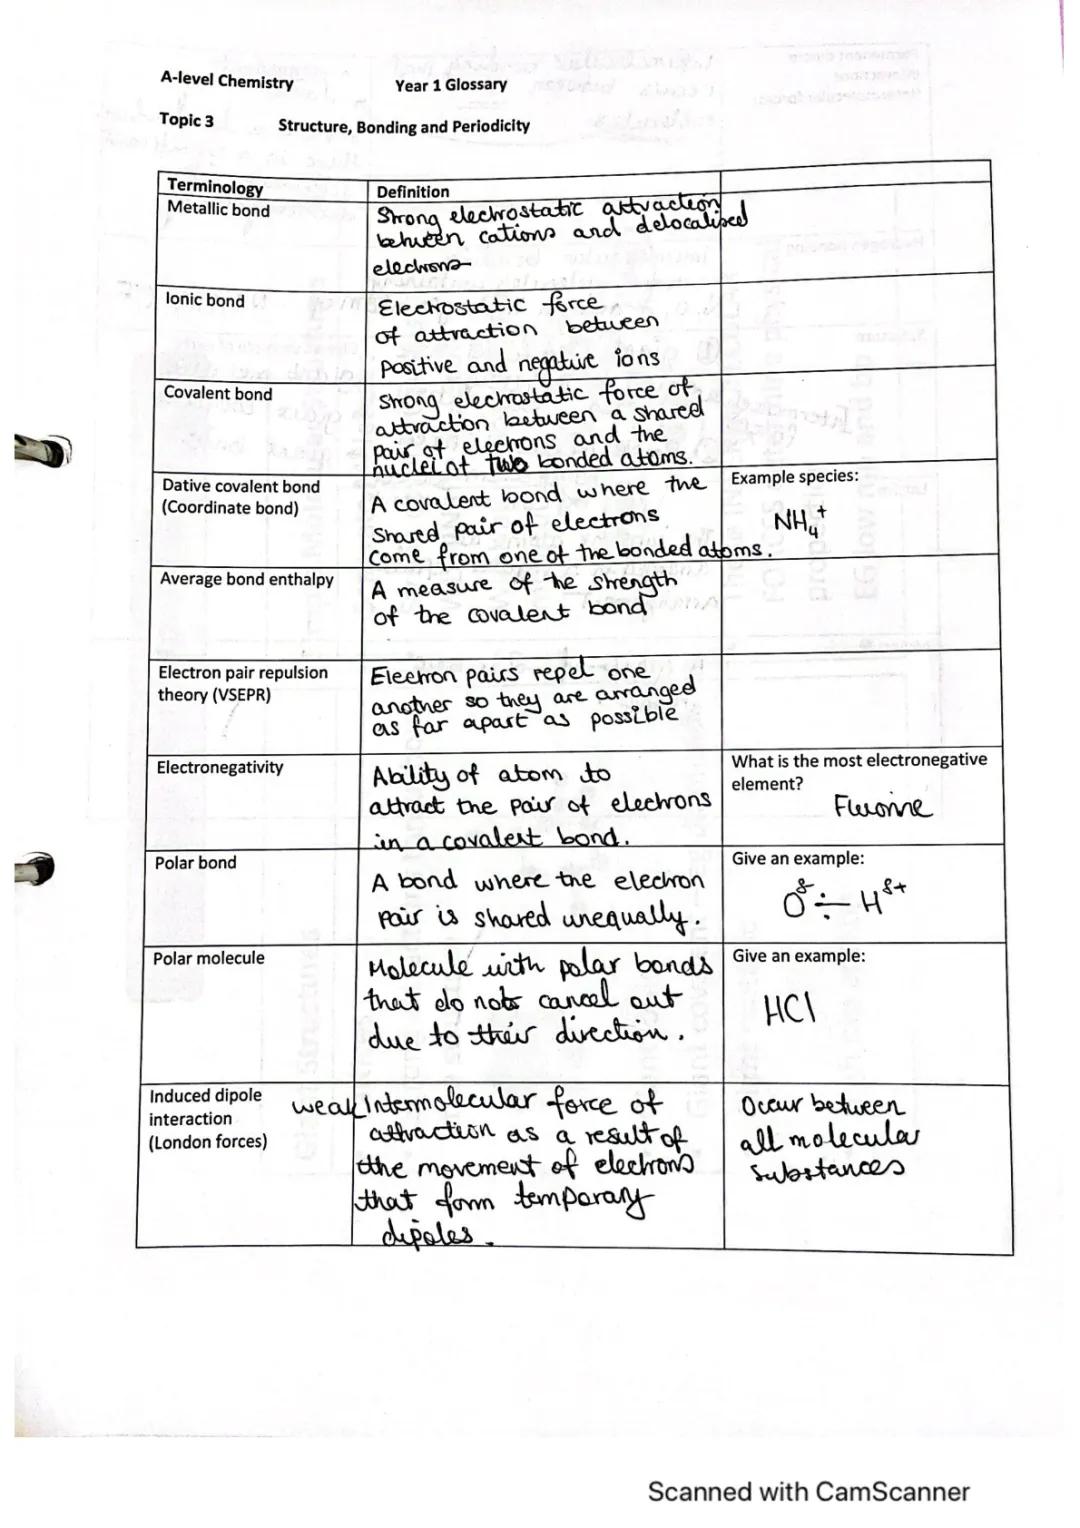 A-level Chemistry Year 1 Glossary
Topic 3 Structure, Bonding and Periodicity
Terminology Definition
Metallic bond
Strong electrostatic attraction
between cations and delocalised
electrons
Ionic bond
Electrostatic force
of attraction between
positive and negative ions
Covalent bond
Strong electrostatic force of
attraction between a shared
pair of electrons and the
nuclei of two bonded atoms.
Dative covalent bond
(Coordinate bond)
A covalent bond where the
shared pair of electrons
come from one of the bonded atoms.
Example species:
NH₄⁺
Average bond enthalpy
A measure of the strength
of the covalent bond
Electron pair repulsion
theory (VSEPR)
Electron pairs repel one
another so they are arranged
as far apart as possible
Electronegativity
Ability of atom to
attract the pair of electrons
in a covalent bond.
What is the most electronegative
element?
Polar bond
A bond where the electron
pair is shared unequally.
Give an example:
O δ- ÷ H δ+
Polar molecule
Molecule with polar bonds
that do not cancel out
due to their direction.
Give an example:
HCl
Induced dipole
interaction
(London forces)
weak Intermolecular force of
attraction as a result of
the movement of electrons
that form temporary
dipoles.
Occur between
all molecular
substances
Scanned with CamScanner